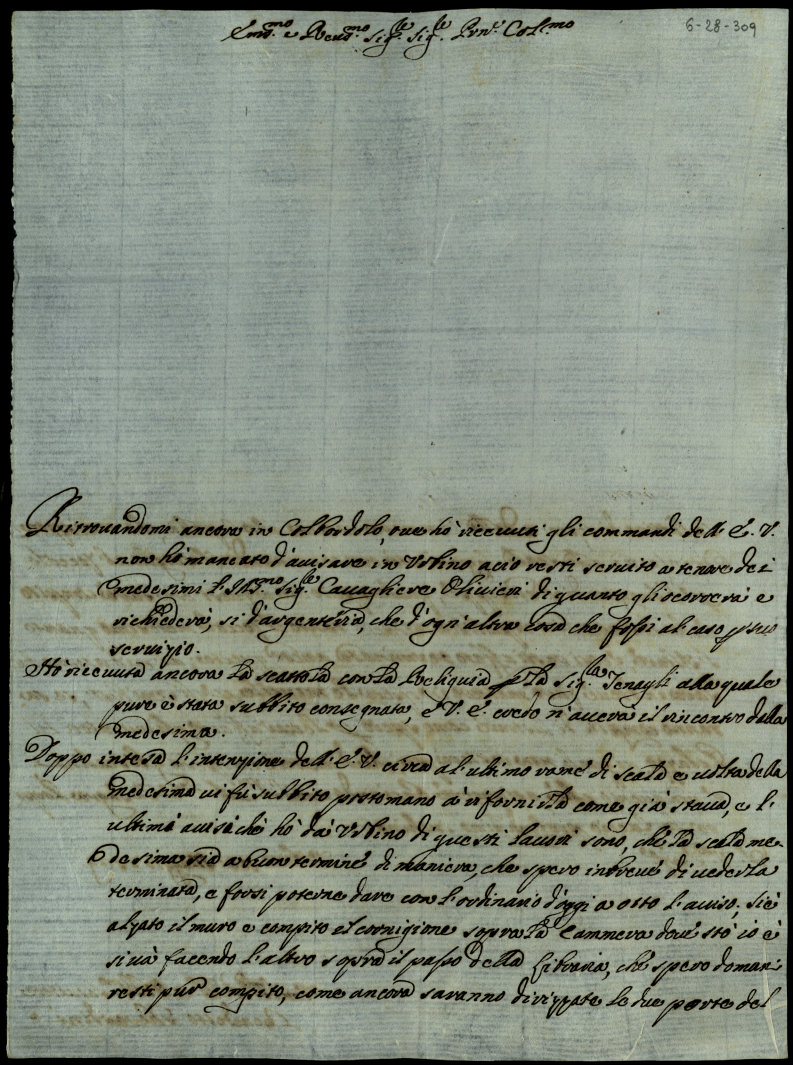 6-28-309
Em.mo e Reud.mo Sig.re Sig.re Pron.e Col.mo
Ritrouandomi ancora in Colbordolo, oue hò riceuuti gli commandi dell' E. V.
non hò mancato d'auisare in Vrbino acio resti seruito a tenore dei
medesimi l'Ill.mo Sig.re Cauagliere Oliuieri di quanto gli ocorrerà e
richiederà, si d'argenteria, che d'ogn'altra cosa che fossi al caso p suo
seruizio.
Hò riceuuta ancora la scattola con la Reliquia p la Sig.la Tenagli alla quale
pure è stata subbito consegnata, e V. E. credo n'auerà il riscontro dalla
medesima.
Doppo intesa l'intenzione dell' E. V. circa al ultimo ramo di scala e uolta della
medesima ui fù subbito postomano à rifornirla come già staua, e l'
ultimi auisi chè hò da Vrbino di questi lauori sono, chè la scala me-
desima sia a buon terminè di maniera, che spero in breuè di uederla
terminata, e forsi poterne dare con l'ordinario d'oggi a otto l'auiso; si è
alzato il muro e compito il cornigione sopra la Cammera doue stò io è
si uà facendo l'altro sopra il passo della Libraria, chè spero domani
resti pur compito, come ancora saranno dirizzate le due porte del